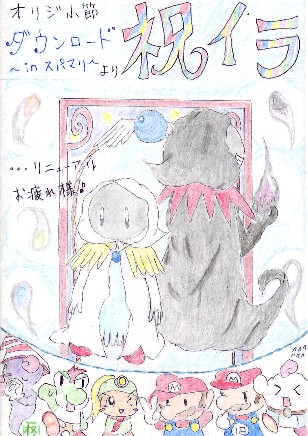 オリジ小節
ダウンロード
～inスパマリ～より
祝イラ
...リニューアル
お疲れ様♪
M
M
柊